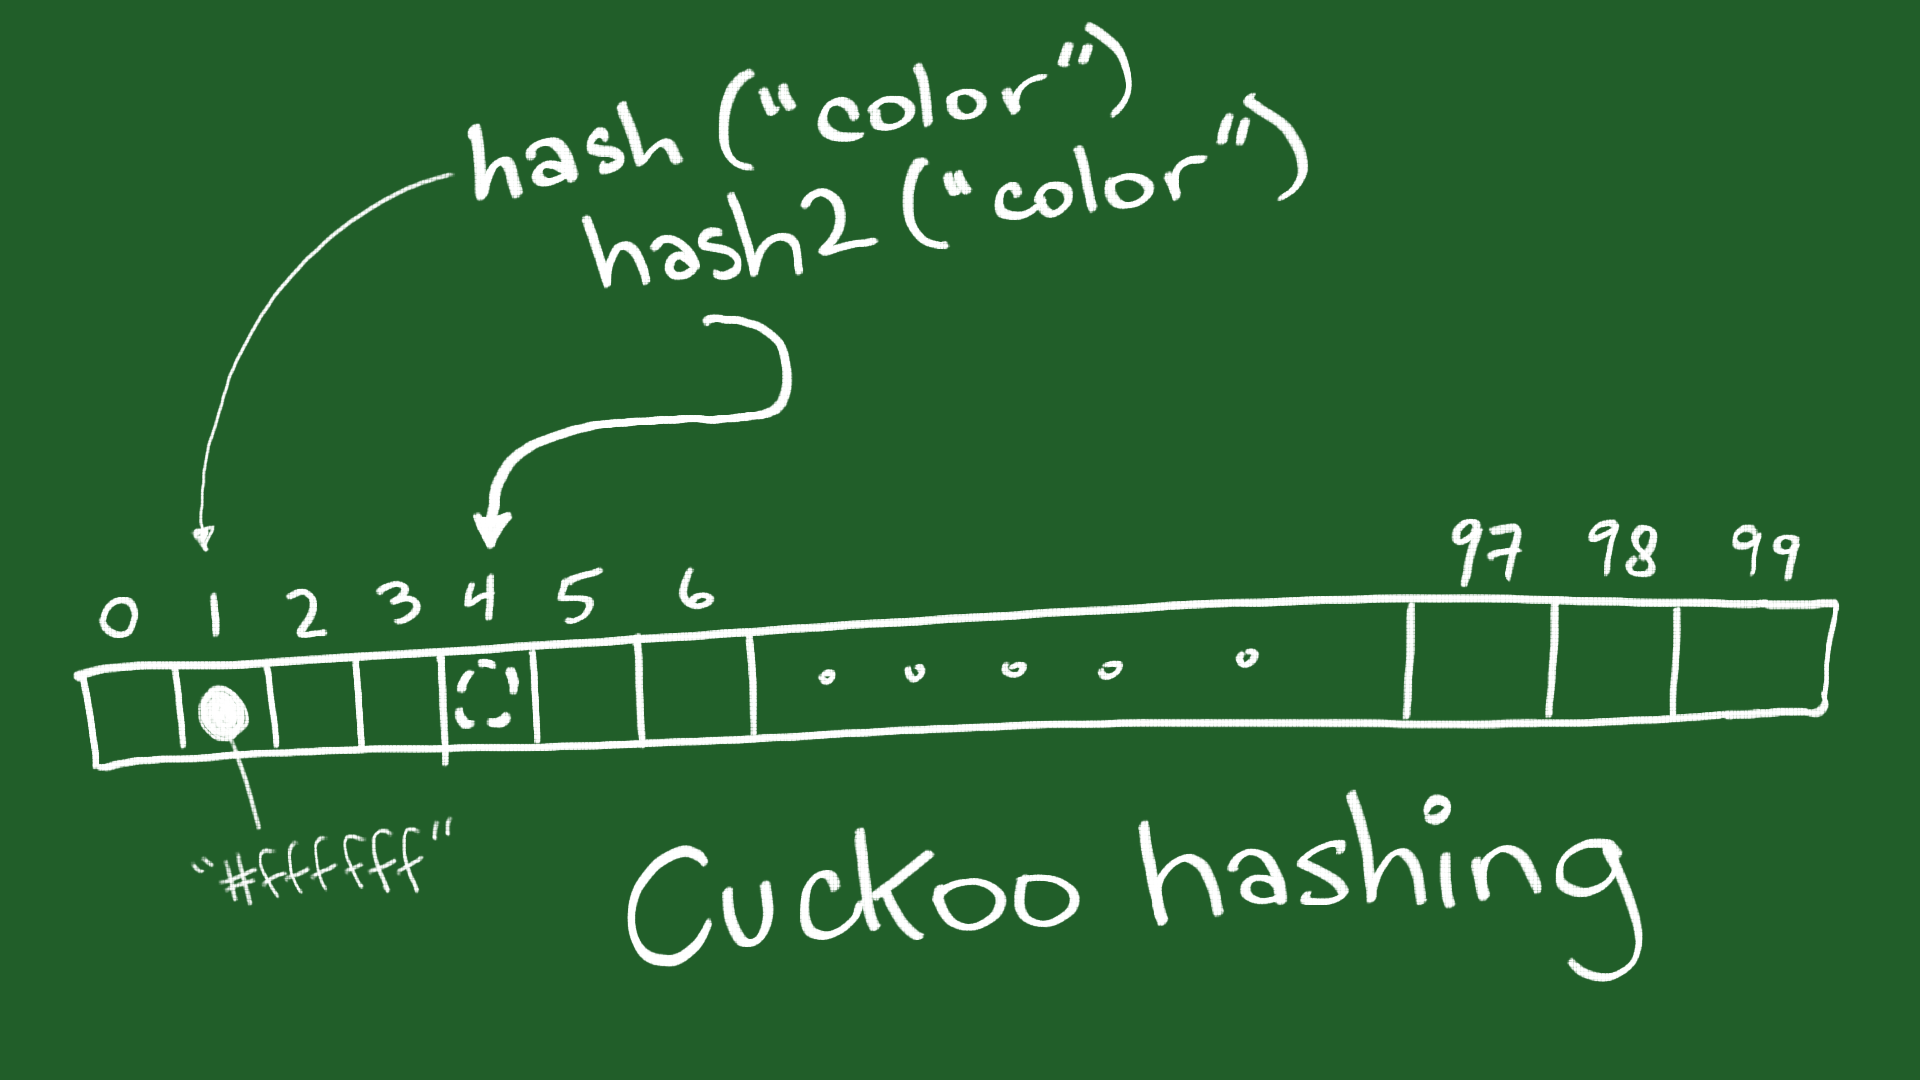 hash ("color")
hash2 ("color")
0 1 2 3 4 5 6 97 98 99
"#ffffff"
Cuckoo hashing